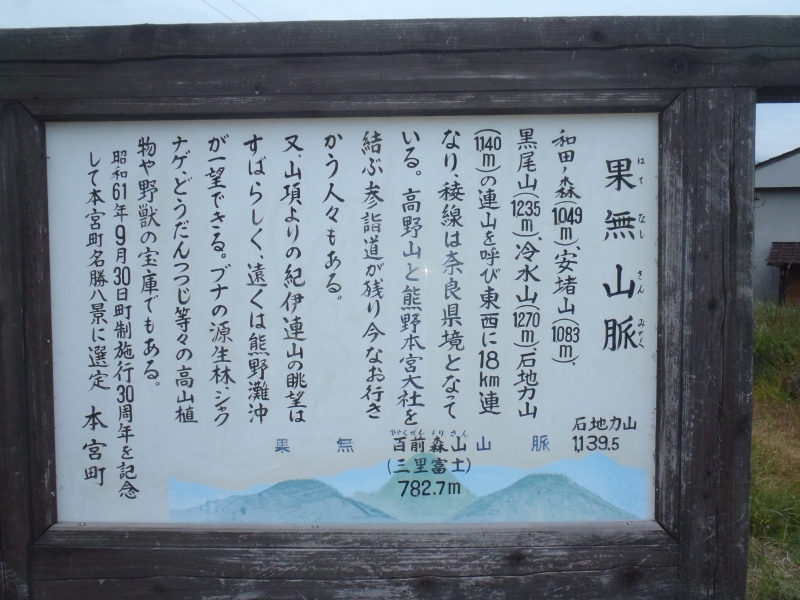 果無山脈
はて なし さん みゃく
和田ノ森(1049m)、安堵山(1083m)、
黒尾山(1235m)、冷水山(1270m)石地力山
(1140m)の連山を呼び東西に18km連
なり、稜線は奈良県境となって
いる。高野山と熊野本宮大社を
結ぶ参詣道が残り今なお行き
かう人々もある。
又、山頂よりの紀伊連山の眺望は
すばらしく、遠くは熊野灘沖
が一望できる。ブナの源生林・シャク
ナゲ、どうだんつつじ等々の高山植
物や野獣の宝庫でもある。
昭和61年9月30日町制施行30周年を記念
して本宮町名勝八景に選定 本宮町
石地力山
1,139.5
果無山脈
ひゃくぜんもりさん
百前森山
(三里富士)
782.7m